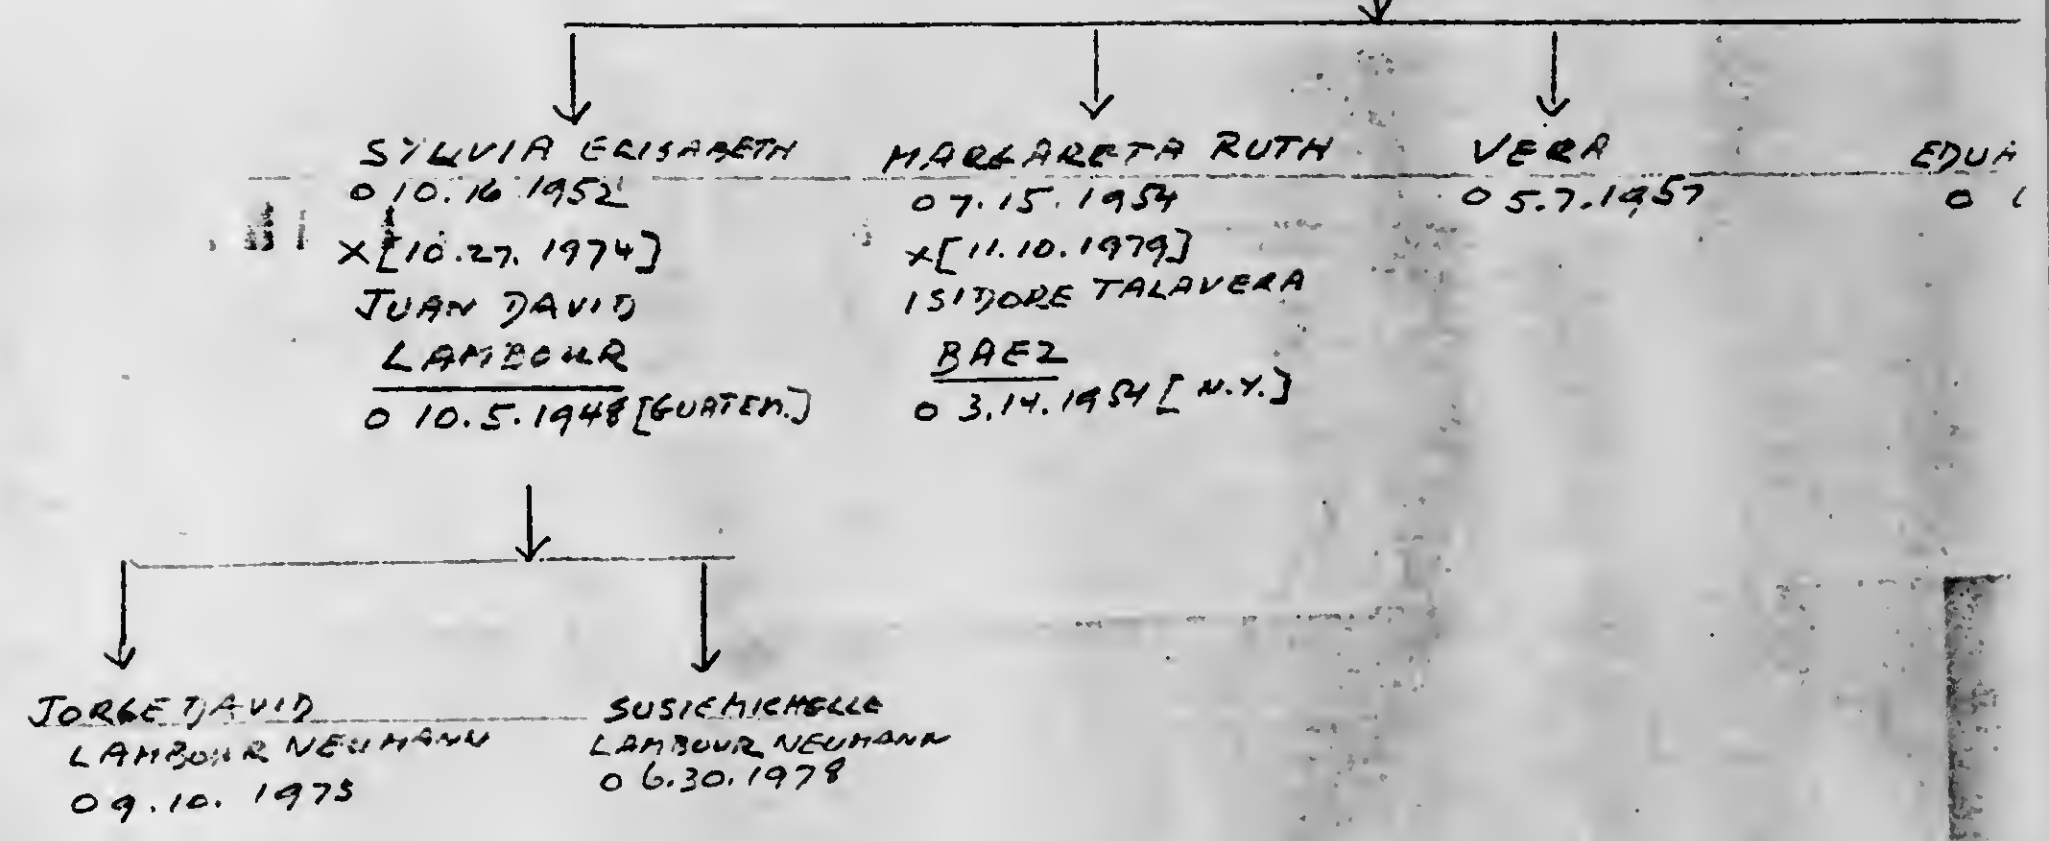 SYLVIA ELISABETH
O 10.16 1952
X [10.27. 1974]
JUAN DAVID
LAMBOUR
O 10.5.1948 [GUATEM.]
MARGARETA RUTH
O 7.15.1954
X [11.10.1979]
ISIDORE TALAVERA
BAEZ
O 3.14.1954 [N.Y.]
VERA
O 5.7.1957
EDUA
O
JORGE DAVID
LAMBOUR NEUMANN
O 9.10.1975
SUSIE MICHELLE
LAMBOUR NEUMANN
O 6.30.1978